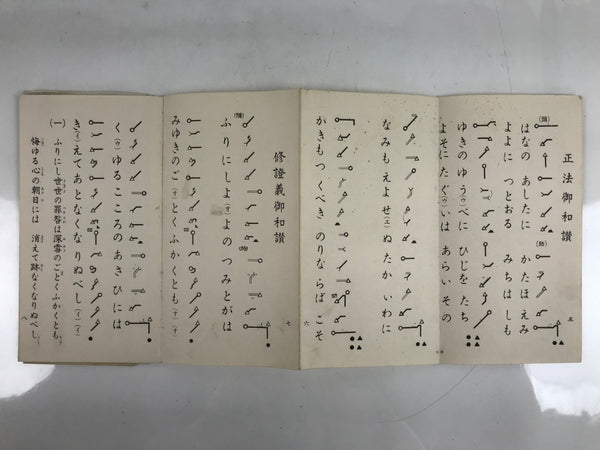 正法御和讃
五
(頭)
はなの あしたに かたほえみ
(助)
よよに つとおる みちはしも
ゆきの ゆう(ウ)べに ひじを たち
よそに たぐ(ウ)いは あらい その
なみも えよせ(エ)ぬ たか いわに
かきもつくべき のりならばこそ
六
修證義御和讃
七
(頭)
ふりにしよ(オ)よのつみとがは
(助)
みゆきのご(オ)とくふかくとも(オ)(オ)
く(ウ)ゆるこころのあさひには
き(イ)えてあとなくなりぬべし(イ)(イ)
(一) ふりにし世世の罪咎は深雪のごとくふかくとも
悔ゆる心の朝日には 消えて跡なくなりぬべし
八